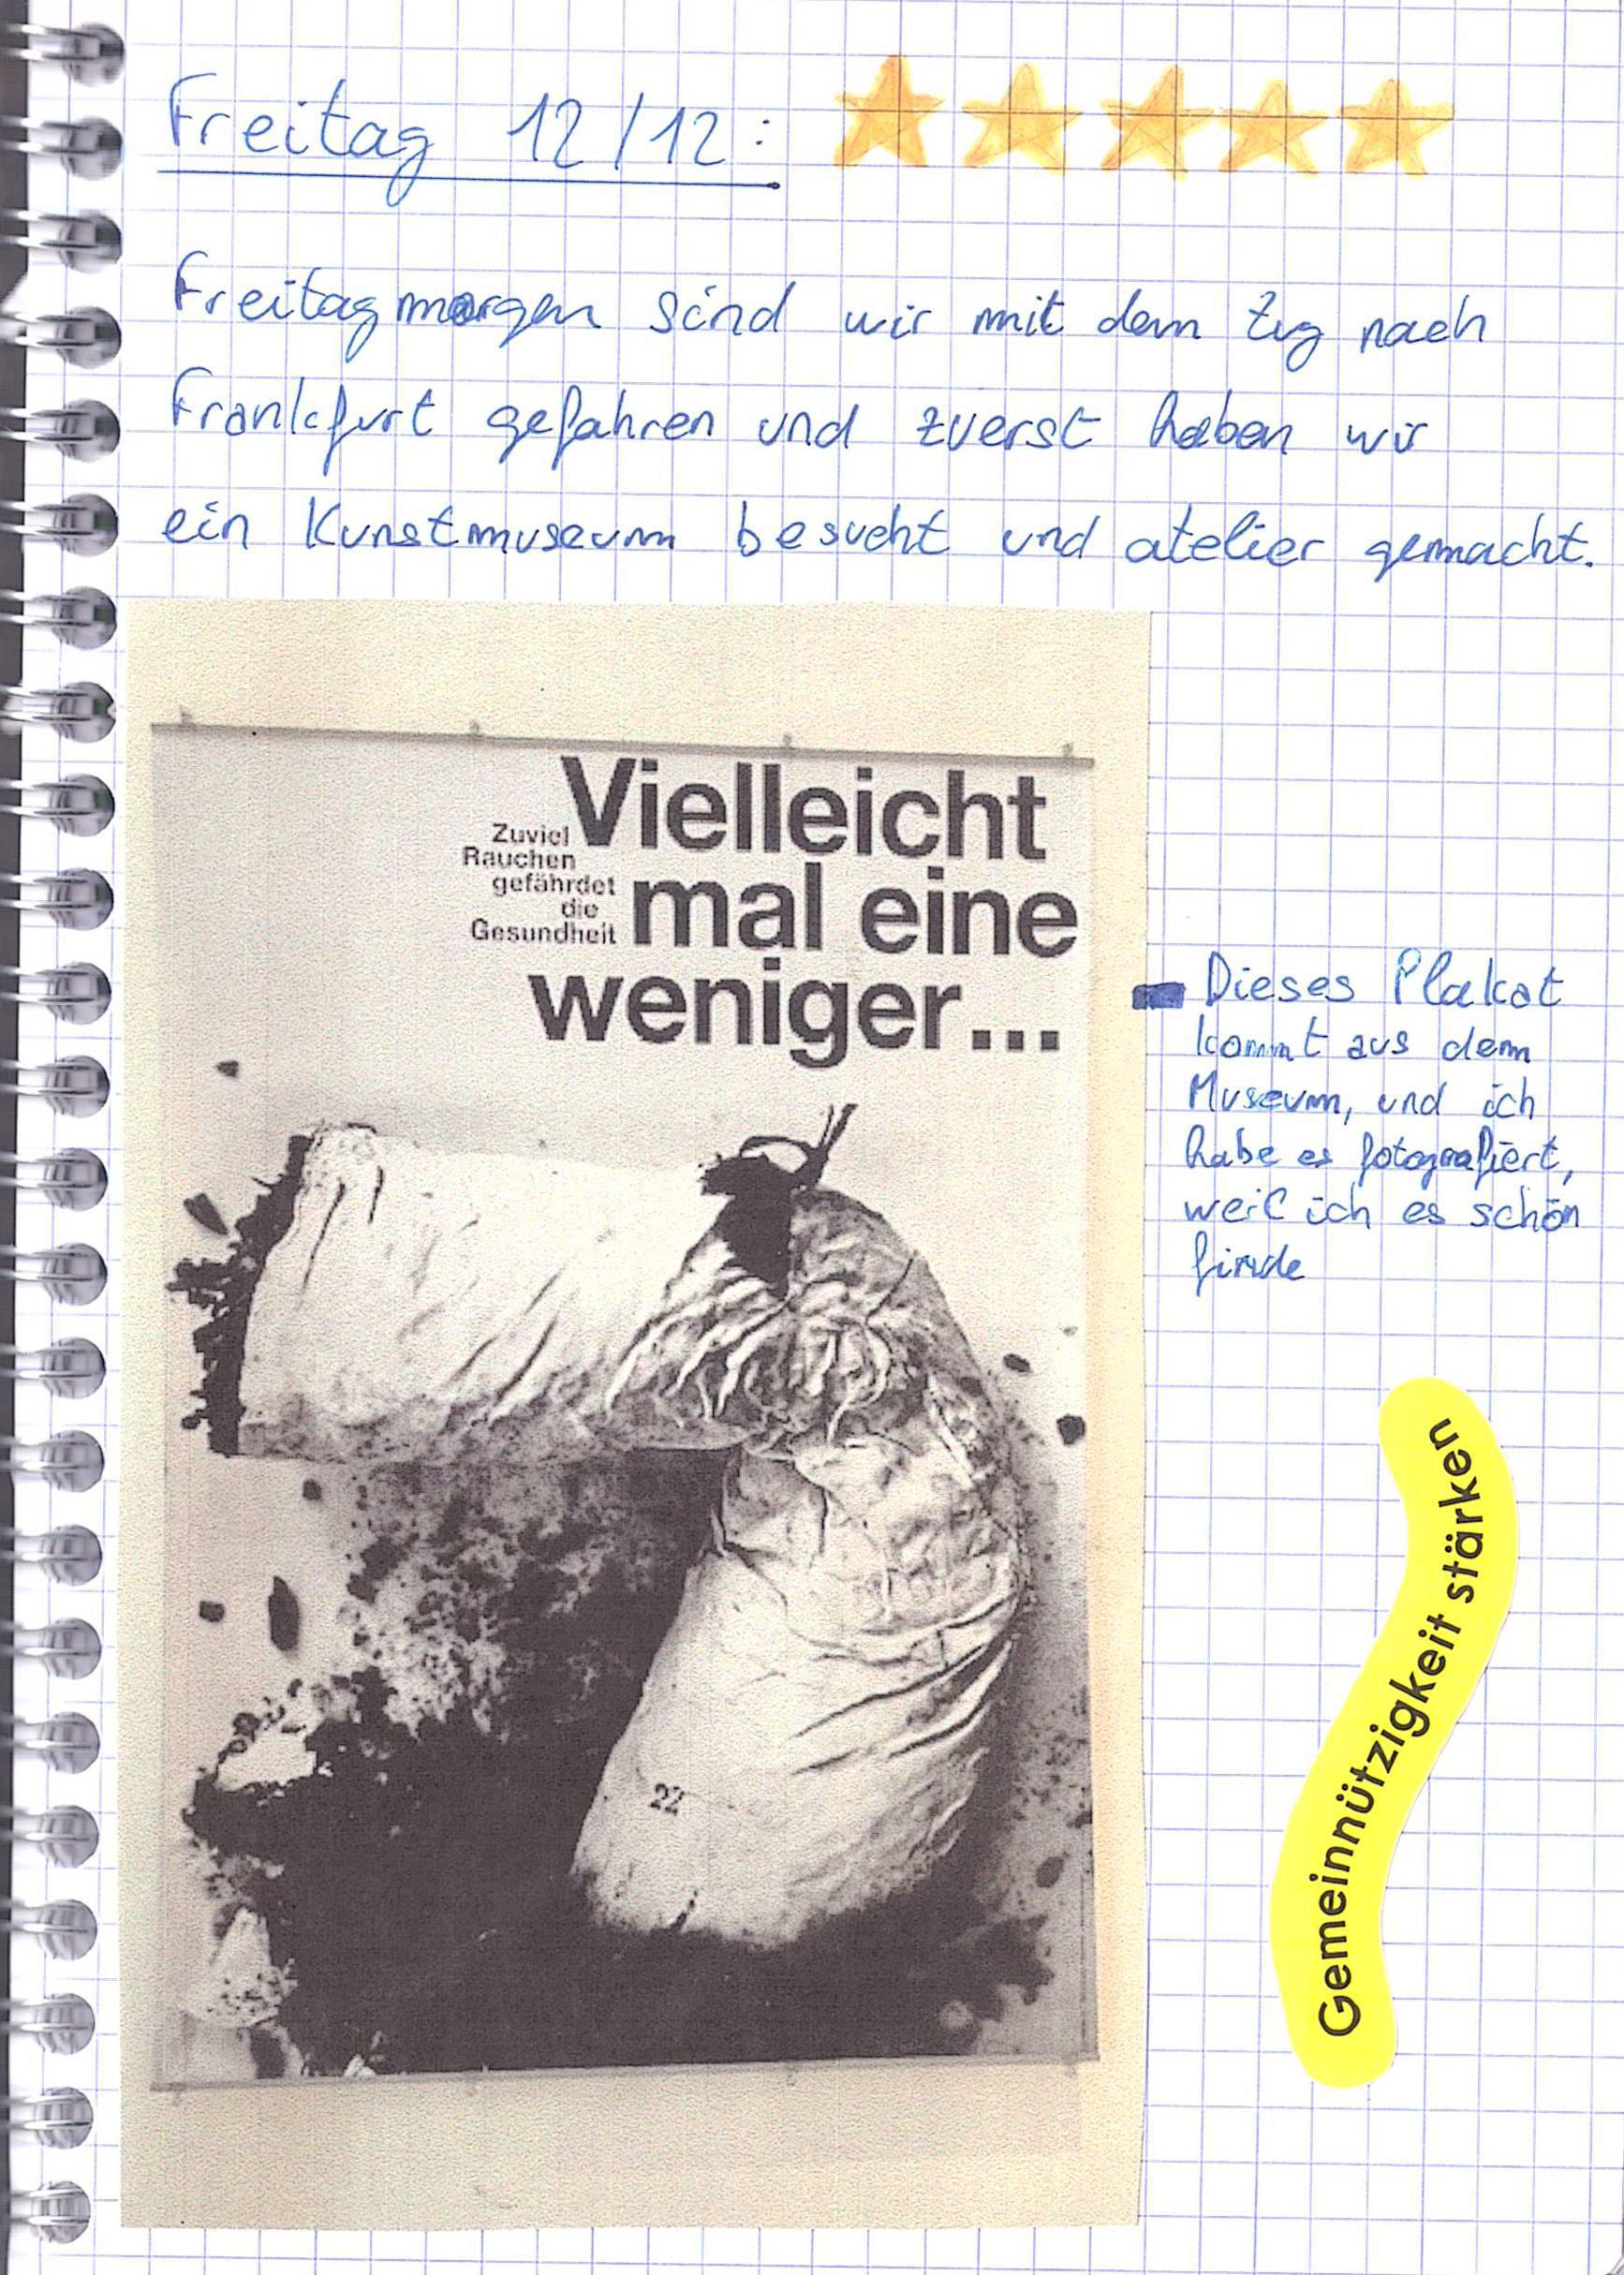 Freitag 12/12:
Freitagmorgen sind wir mit dem Zug nach
Frankfurt gefahren und zuerst haben wir
ein Kunstmuseum besucht und atelier gemacht.
Vielleicht
mal eine
weniger...
Zuviel
Rauchen
gefährdet
die
Gesundheit
22
Dieses Plakat
kommt aus dem
Museum, und ich
habe es fotografiert,
weil ich es schön
finde
Gemeinnützigkeit stärken